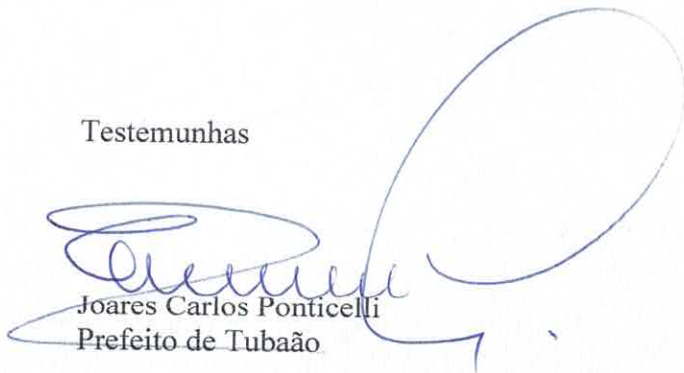 Testemunhas
Joares Carlos Ponticelli
Prefeito de Tubaão